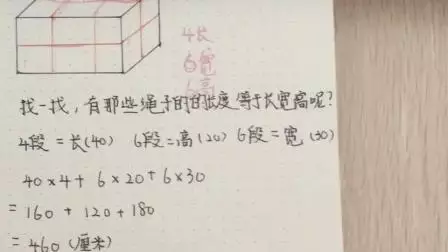 4长
6宽
6高
找一找,有那些绳子的的长度等于长宽高呢?
4段=长(40) 6段=高(20) 6段=宽(30)
40×4+6×20+6×30
=160+120+180
=460(厘米)